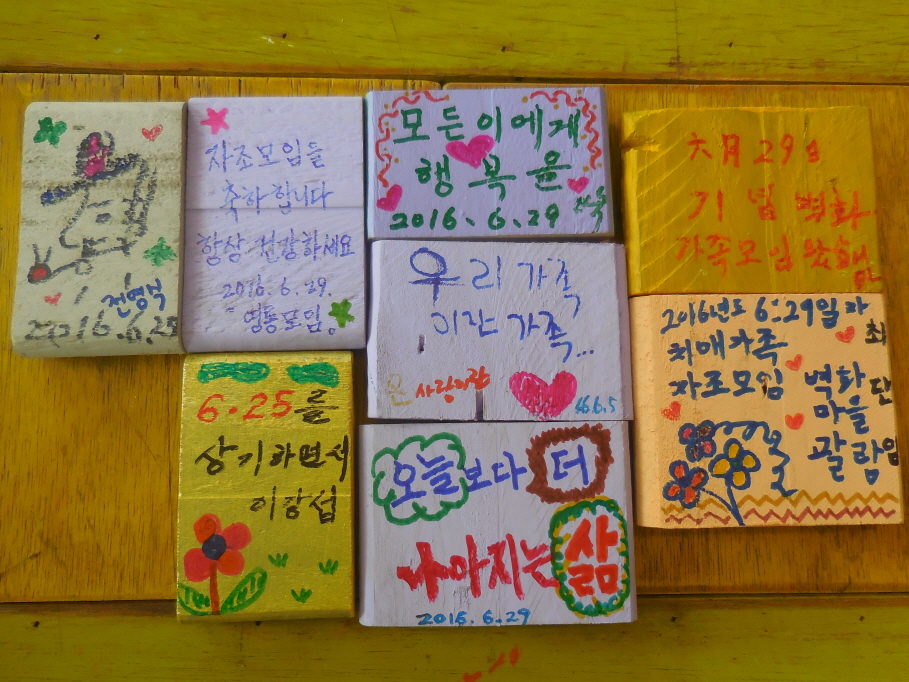 전영석
2016.6.29
자조모임을
축하합니다
항상 건강하세요
2016.6.29.
영통모임.
모든이에게
행복을
2016.6.29
우리가족
이란 가족...
은 사랑이랍
16.6.5
六月29日
기념벽화
가족모임왔
2016년도 6:29일자
치매가족
자조모임 벽화
마을
관람
6.25를
상기하면서
이강섭
오늘보다 더
나아지는 삶
2016.6.29